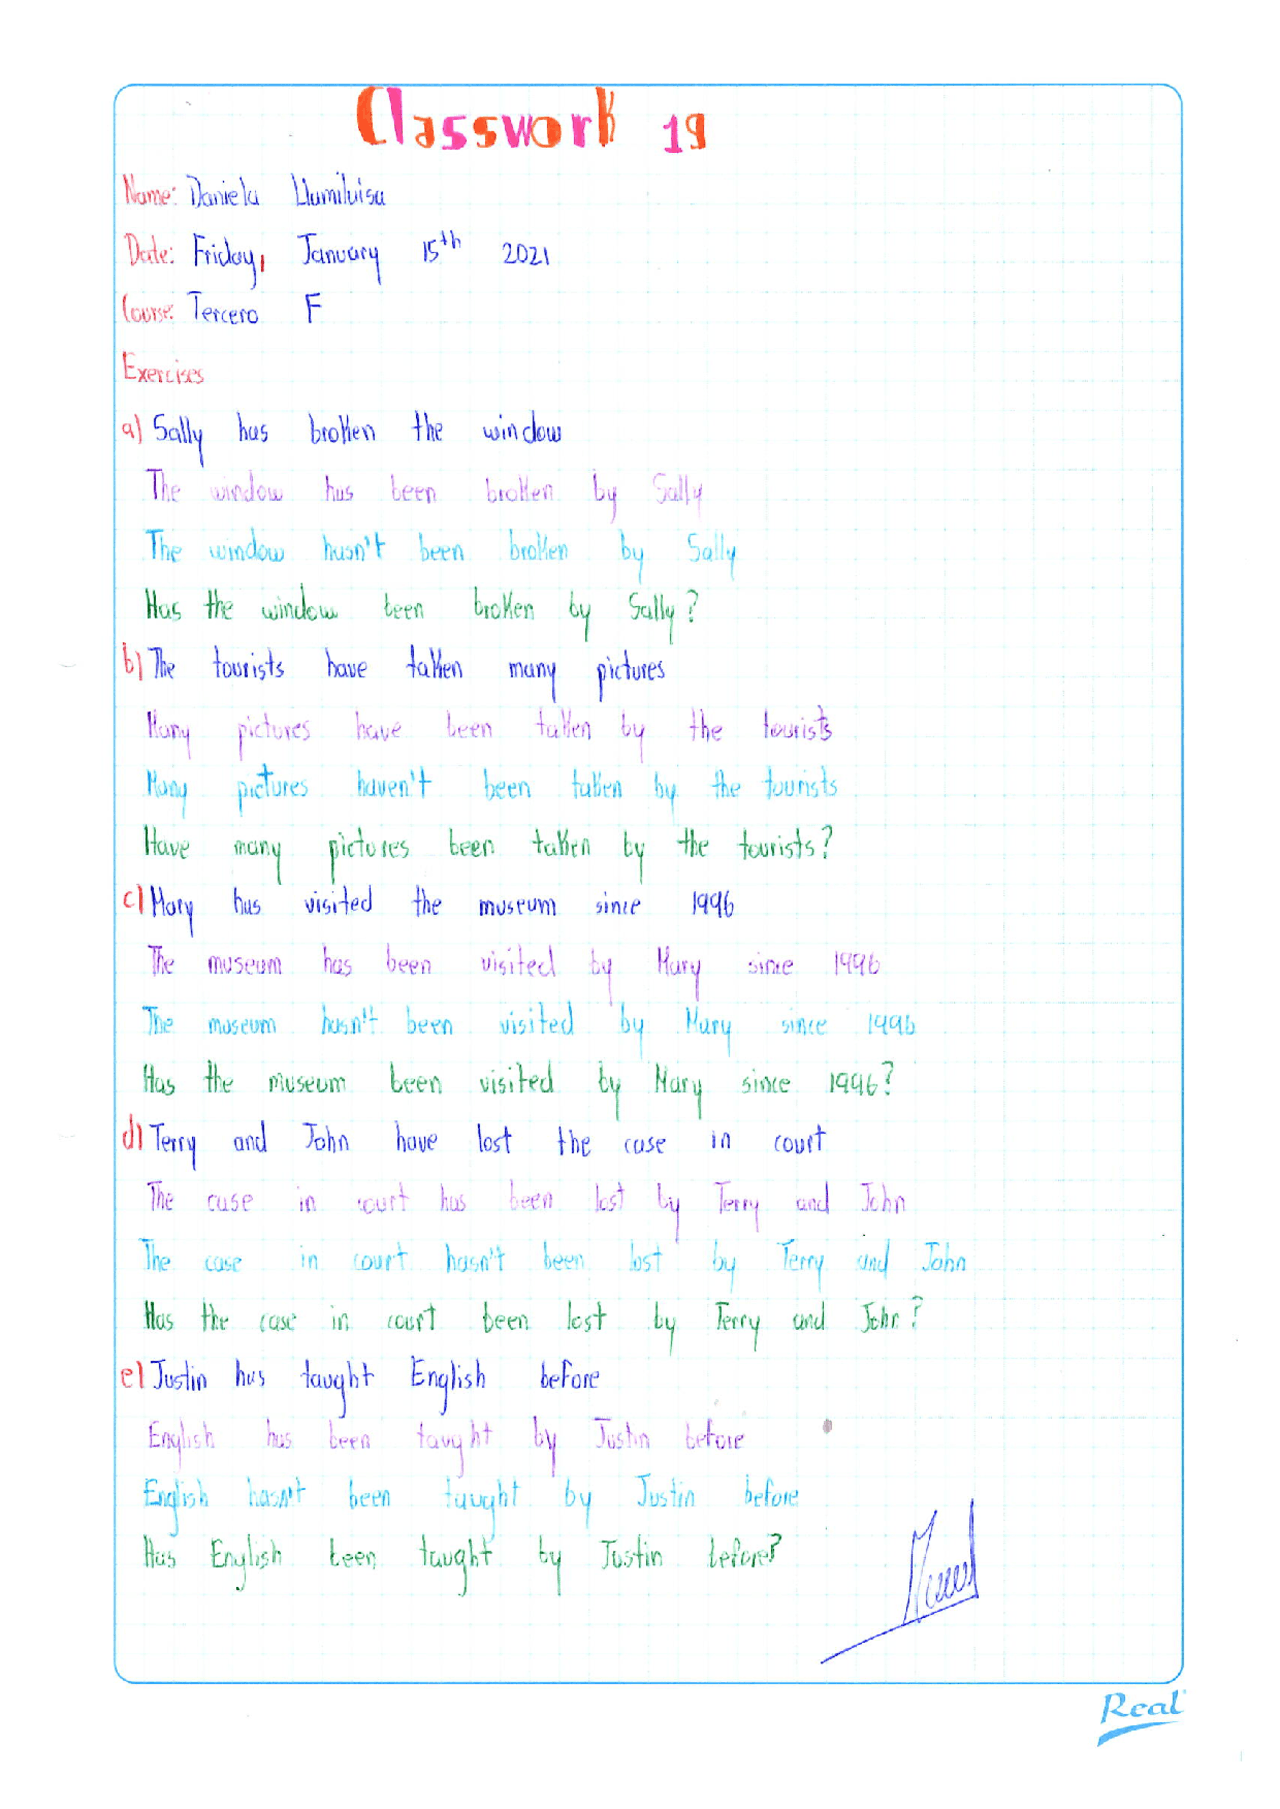 Classwork 19
Name: Daniela Llumiluisa
Date: Friday, January 15th 2021
Course: Tercero F
Exercises
a) Sally has broken the window
The window has been broken by Sally
The window hasn't been broken by Sally
Has the window been broken by Sally?
b) The tourists have taken many pictures
Many pictures have been taken by the tourists
Many pictures haven't been taken by the tourists
Have many pictures been taken by the tourists?
c) Mary has visited the museum since 1996
The museum has been visited by Mary since 1996
The museum hasn't been visited by Mary since 1996
Has the museum been visited by Mary since 1996?
d) Terry and John have lost the case in court
The case in court has been lost by Terry and John
The case in court hasn't been lost by Terry and John
Has the case in court been lost by Terry and John?
e) Justin has taught English before
English has been taught by Justin before
English hasn't been taught by Justin before
Has English been taught by Justin before?
Real